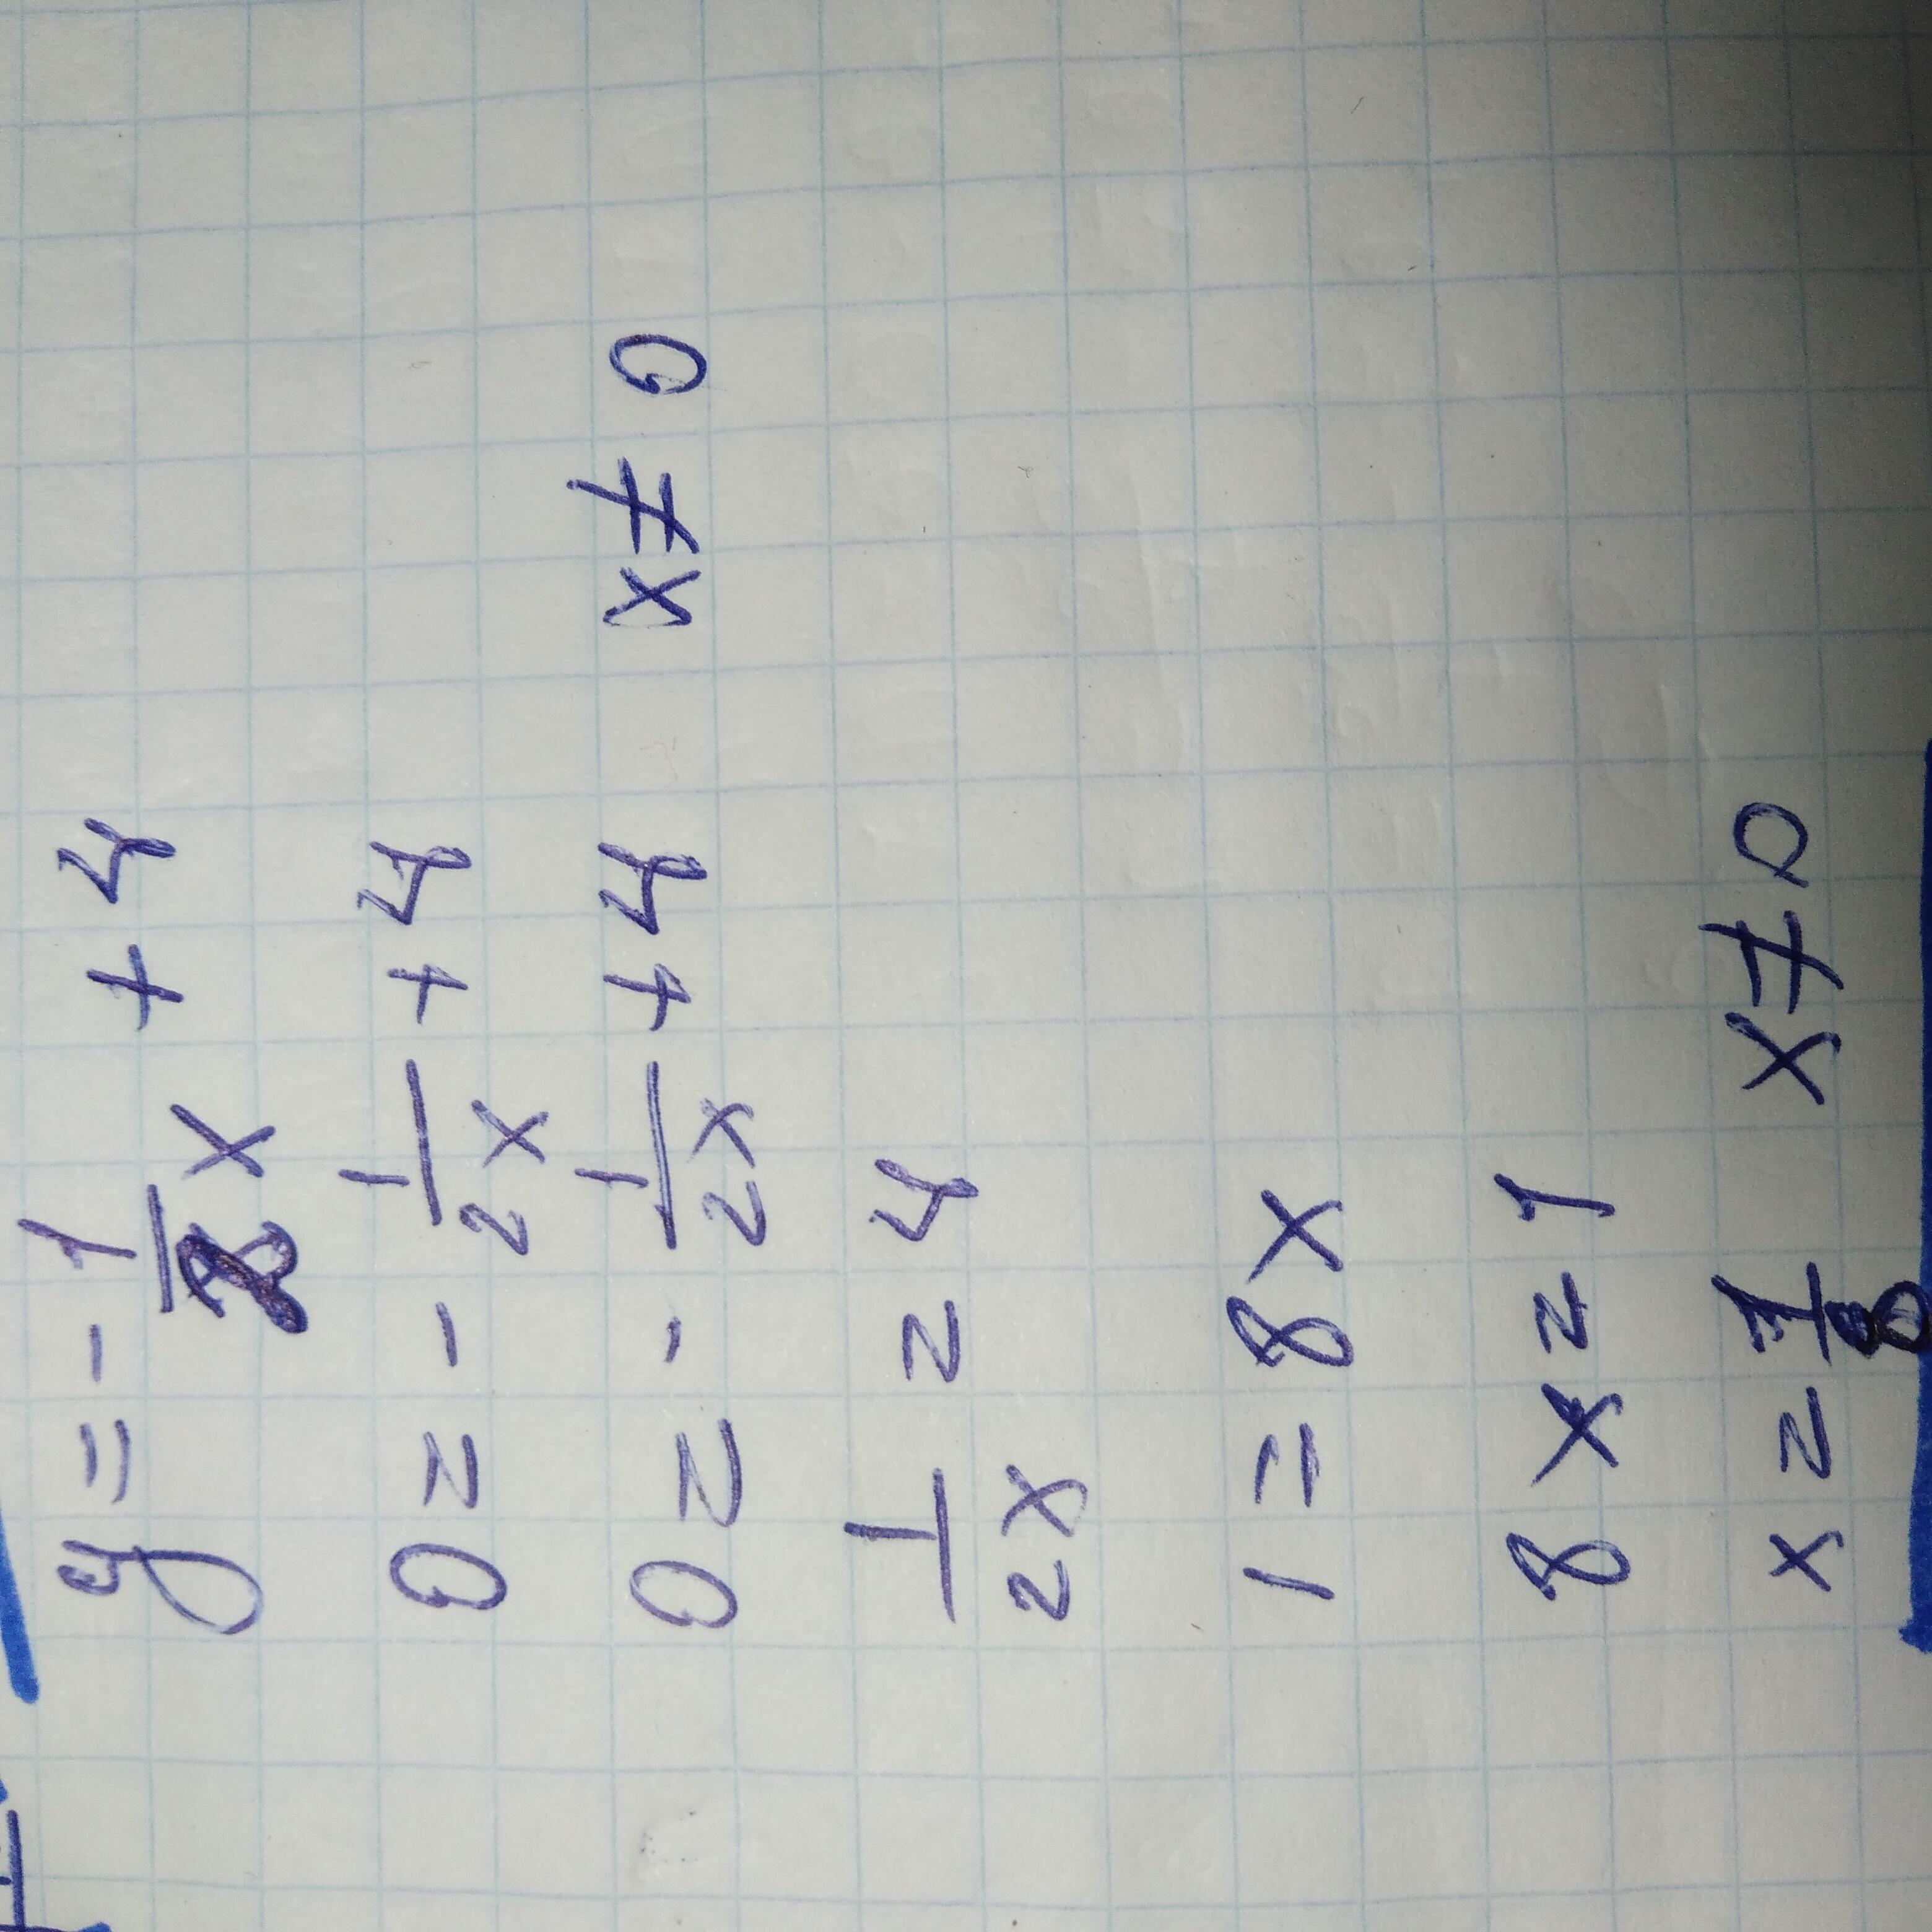 y = - 1/2x + 4
0 = - 1/2x + 4
0 = - 1/2x + 4 x ≠ 0
1/2x = 4
1 = 8x
8x = 1
x = 1/8 x ≠ 0